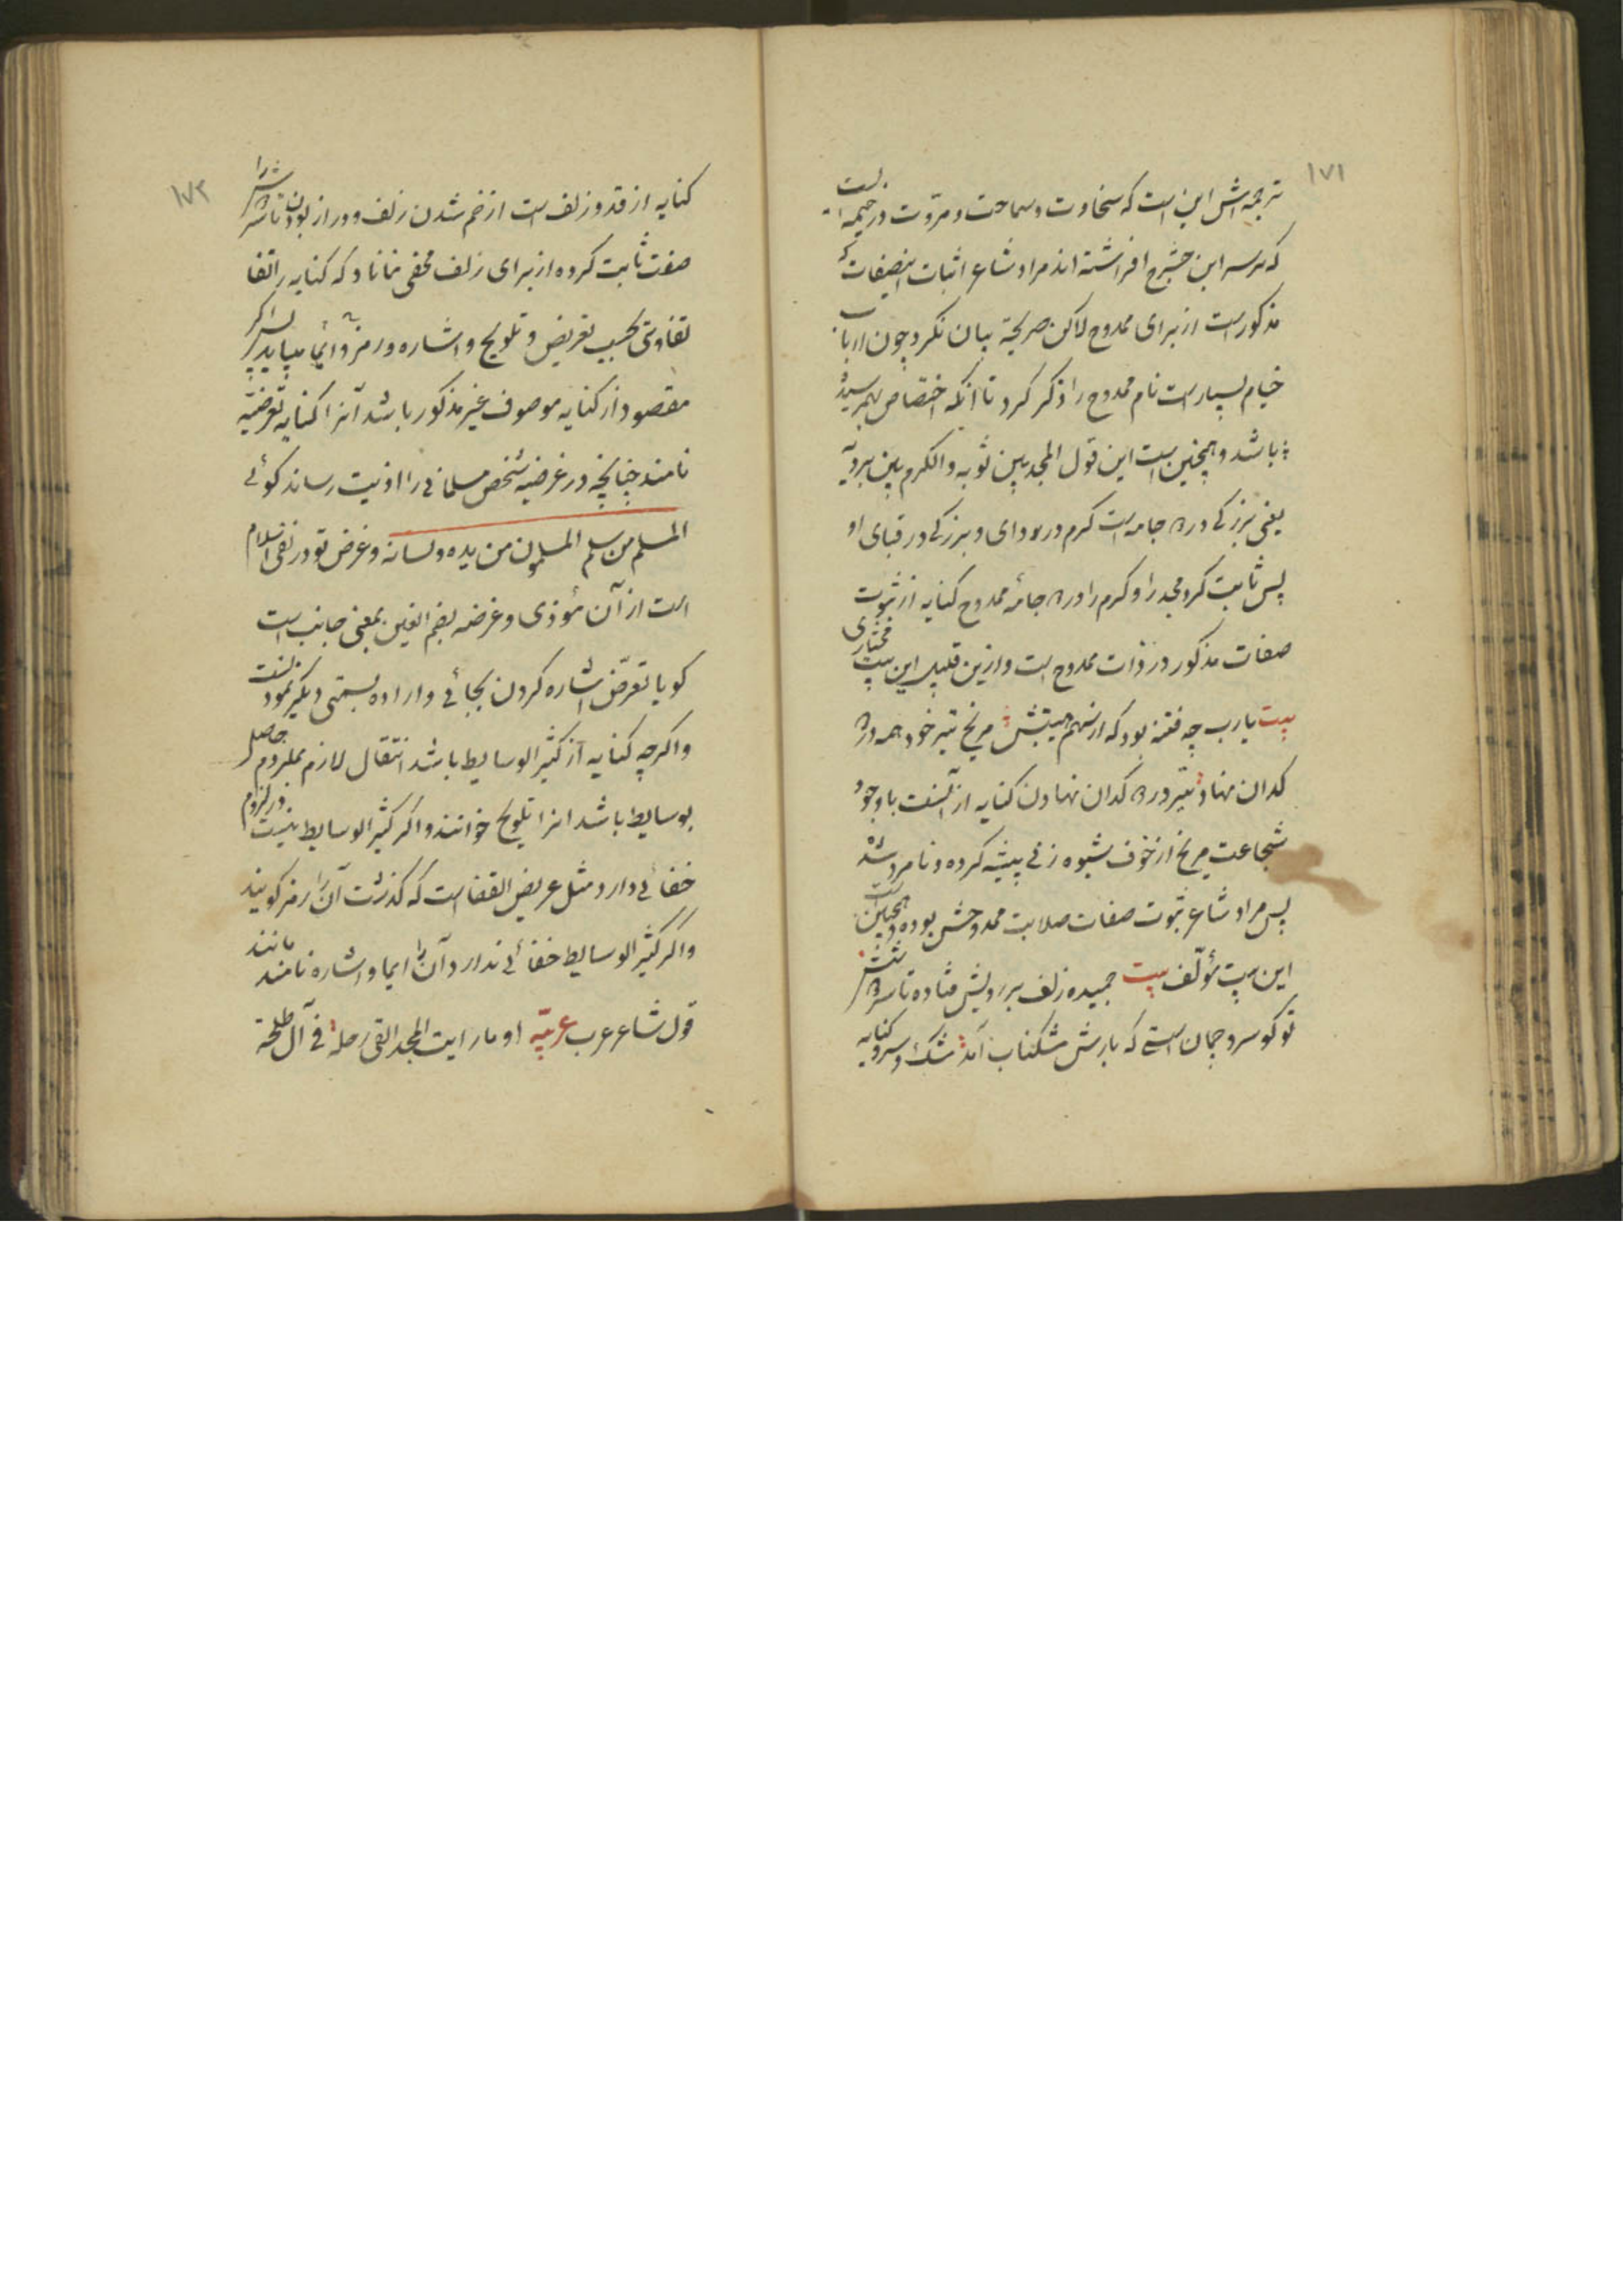 ۱۷۱
ترجمه‌اش این است که سخاوت و سماحت و مروّت در خیمه ایست
که بر سر ابن حشرج افراشته اند مراد شاعر اثبات اینصفات
مذکور است از برای ممدوح لاکن صریحة بیان نکرد چون ارباب
خیام بسیار است نام ممدوح را ذکر کرد تا آنکه اختصاص بهم رسیده
باشد و همچنین است این قول المجد بین ثوبه والکرم بین بردیه
یعنی بزرگی در جامه است کرم در ردای و بزرگی در قبای او
پس ثابت کرد مجد را و کرم را در جامۀ ممدوح کنایه از ثبوت
صفات مذکور در ذات ممدوح است و ازین قبیل این بیت مختاری
بیت یارب چه فتنه بود که از سهم هیبتش مریخ تیر خود همه در
کدان نهاد تیر در کدان نهادن کنایه از آنست با وجود
شجاعت مریخ از خوف شیوه زنی پیشه کرده و نامرد شده
پس مراد شاعر ثبوت صفات صلابت ممدوحش بوده و همچنین است
این بیت مؤلّف بیت خمیده زلف بر رویش فتاده تا سر
تو گو سرو چمان استی که بارش مشکناب آمد مشک و سرو کنایه
۱۷۲
کنایه از قد و زلف است از خم شدن زلف و دراز بودن تا سر
صفت ثابت کرده از برای زلف مخفی نماناد که کنایه را اتفا
تفاوتی بحسب تعریض و تلویح و اشاره و رمز و ایما بیاید پس اگر
مقصود از کنایه موصوف غیر مذکور باشد آنرا کنایه تعرضیّه
نامند چنانچه در عرضیه شخص مسلمانی را اذیت رساند گوئی
المسلم من سلم المسلمون من یده ولسانه و غرض تو در نفی اسلام
است از آن مؤذی و عرضه بضم العین بمعنی جانب است
گویا تعرّض اشاره کردن بجائی و اراده بسمتی دیگر نمودنست
و اگر چه کنایه از کثیر الوسایط باشد انتقال لازم بملزوم حاصل
بوسایط باشد انرا تلویح خوانند و اگر کثیر الوسایط نیست در لزوم
خفائی دارد مثل عریض القفا است که گذشت آن را رمز گویند
و اگر کثیر الوسایط خفائی ندارد آن را ایما و اشاره نامند مانند
قول شاعر عرب عربیّه او ما رایت المجد القی رحله فی آل طلحة